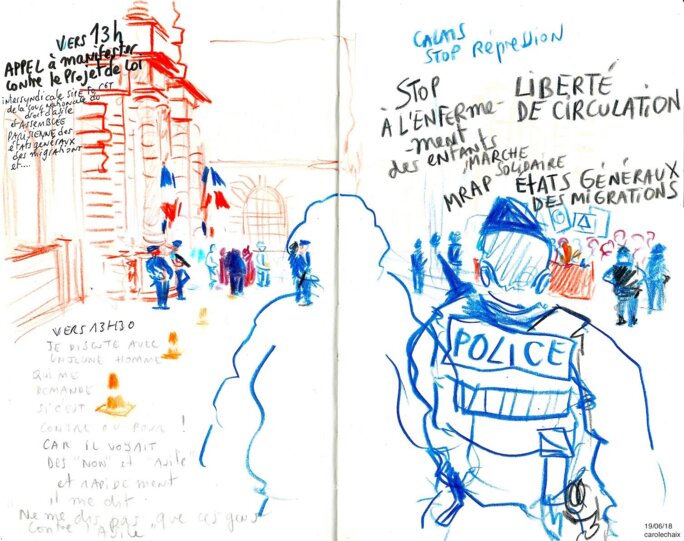 VERS 13h
APPEL à manifester
contre le Projet de Loi
intersyndicale
de la cour nationale du
droit d'asile
et ASSEMBLEE
PARISIENNE des
ETATS GENERAUX
des MIGRATIONS
et....
VERS 13H30
JE DISCUTE AVEC
UN JEUNE HOMME
QUI ME
DEMANDE
SI C'EST
CONTRE OU POUR !
CAR IL VOYAIT
DES "NON" et "ASILE"
et RAPIDEMENT
il me dit
"Ne me dis pas que ces gens
contre l'Asile
CALAIS
STOP RépRession
STOP
À L'ENFERME-
-ment
des enfants
LIBERTÉ
DE CIRCULATION
MARCHE
SOLIDAIRE
MRAP
ÉTATS GÉNÉRAUX
DES MIGRATIONS
POLICE
19/06/18
carolechaix